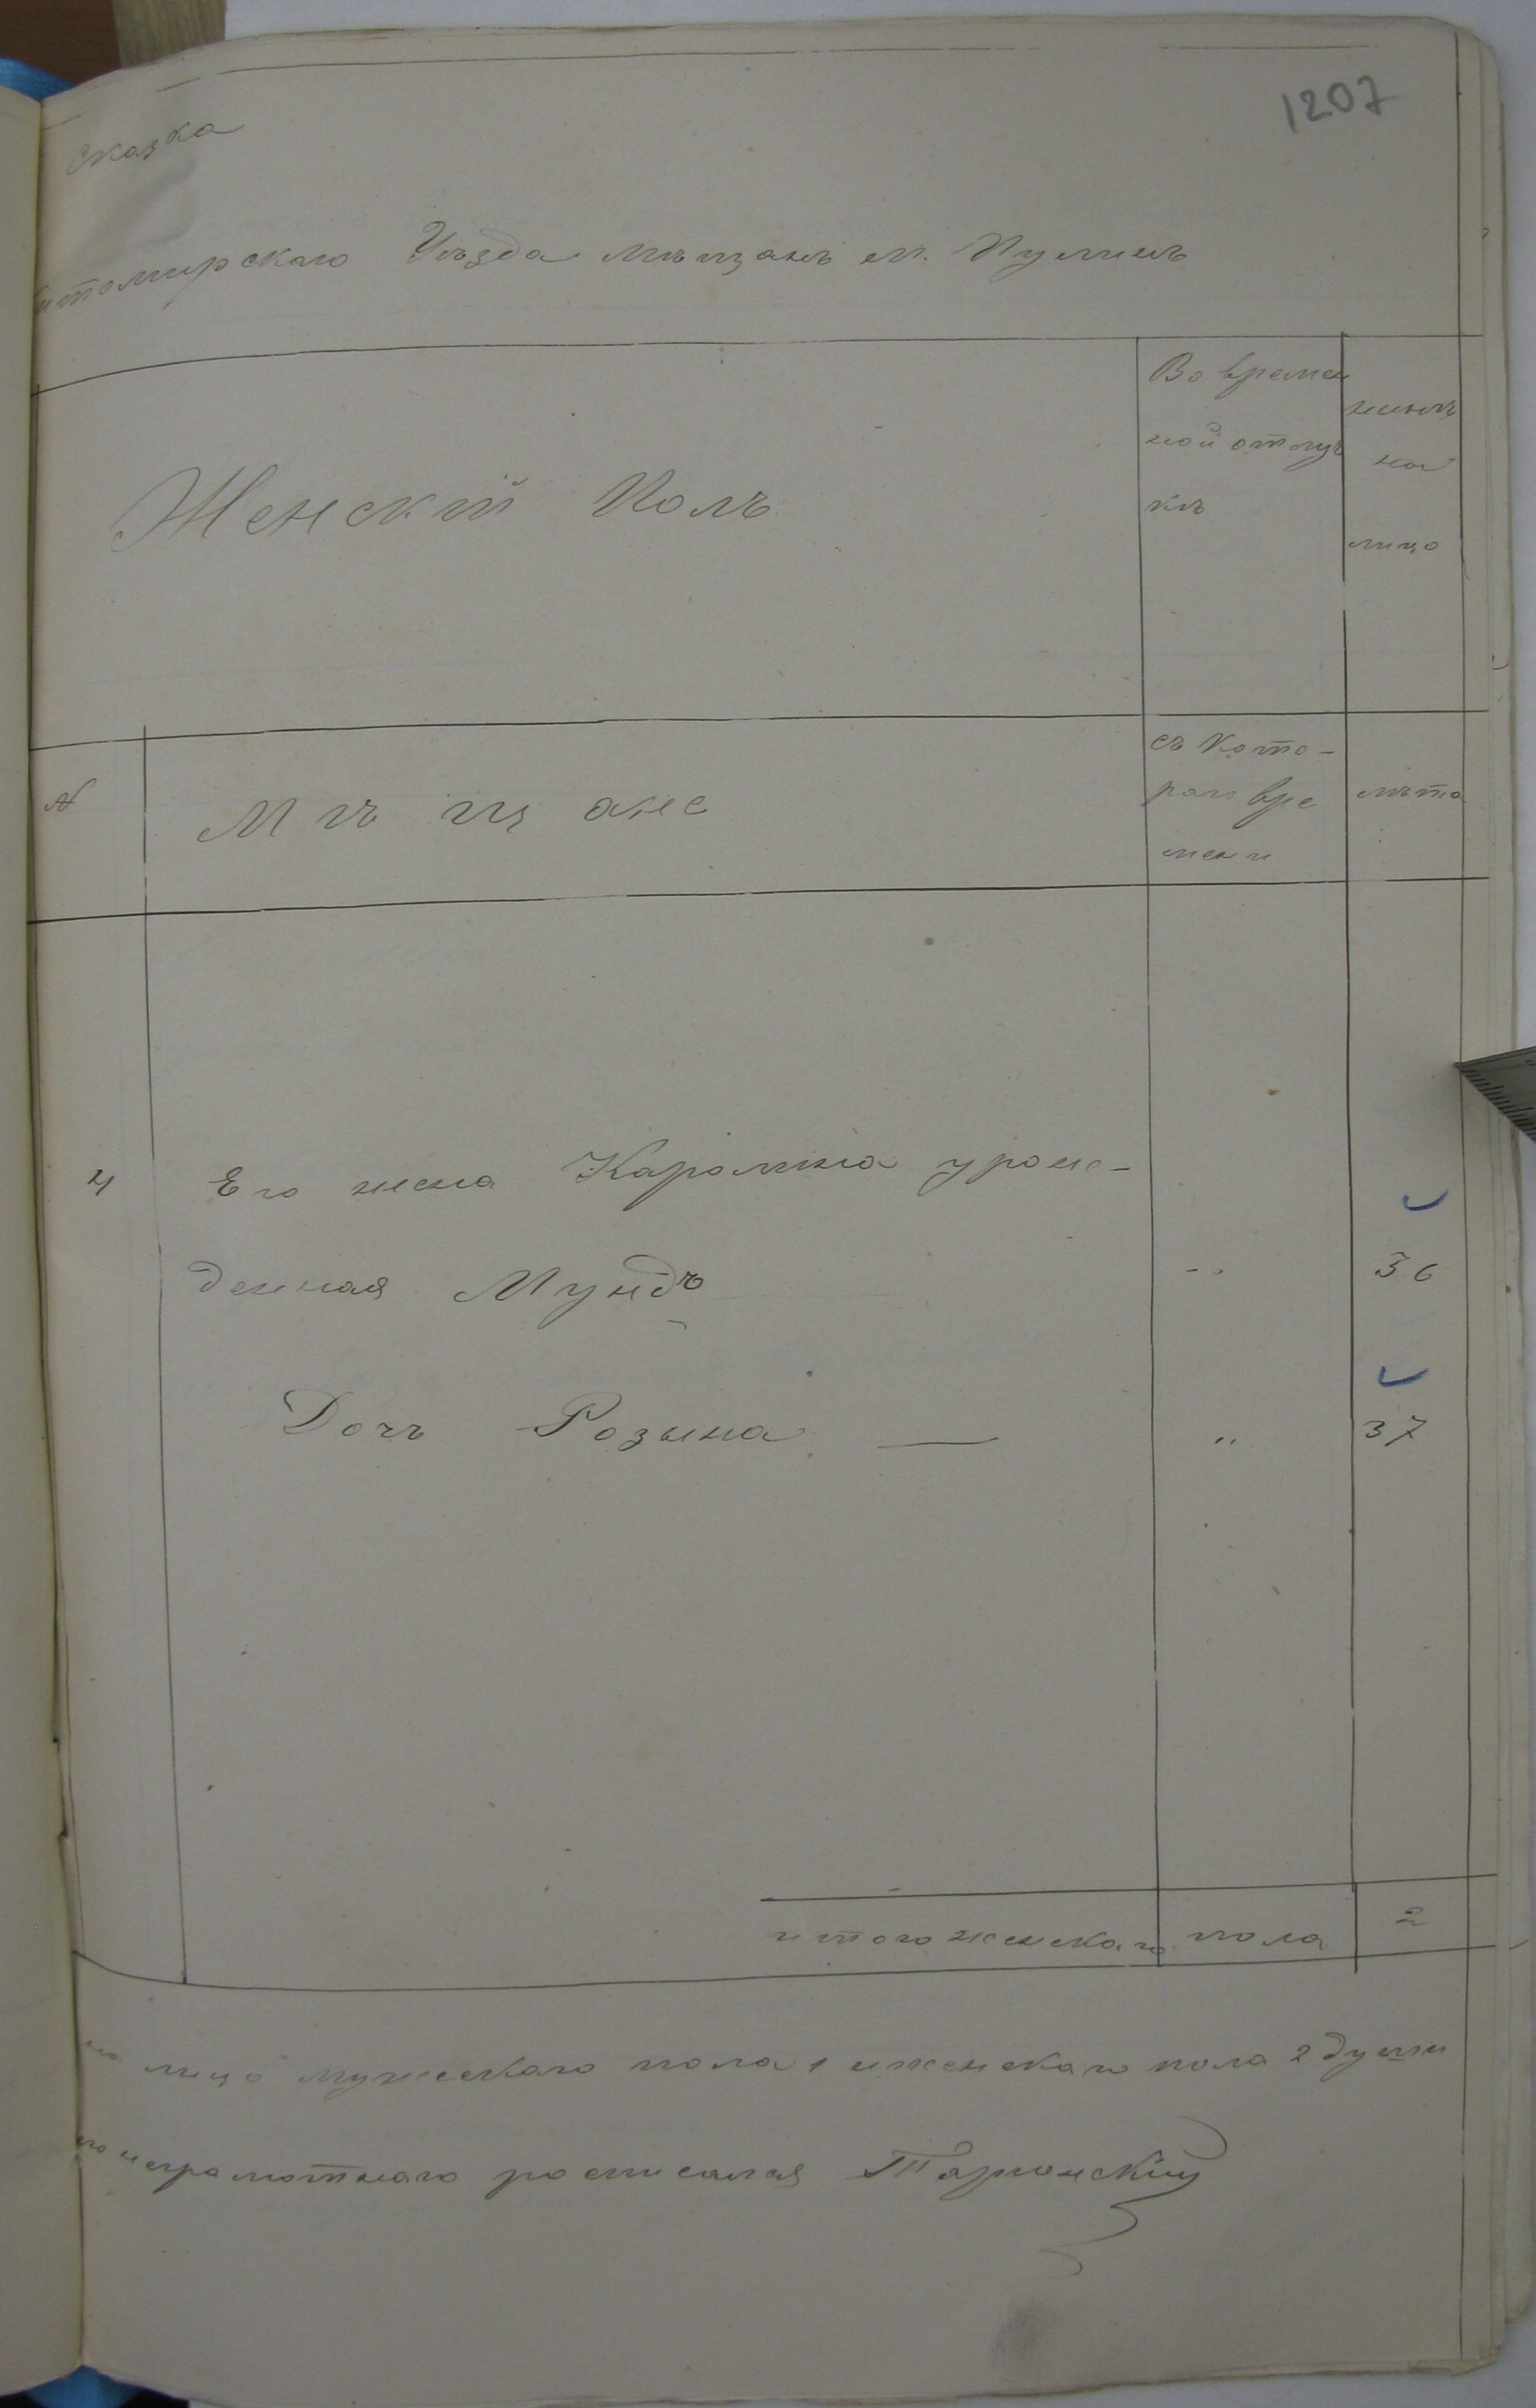 1207
Сказка
итомирскаго Уѣзда мѣщанъ м. Пулинъ
Женскій Полъ
Во времен
ной отлуч
кѣ
нынѣ
на
лицо
№
Мѣщане
съ кото-
раго вре
мени
лѣта
4 Его жена Каролина урож-
денная Мундъ 36
Дочь Розына — „ 37
итого женскаго пола 2
на лицо мужескаго пола 1 и женскаго пола 2 души
неграмотнаго росписался